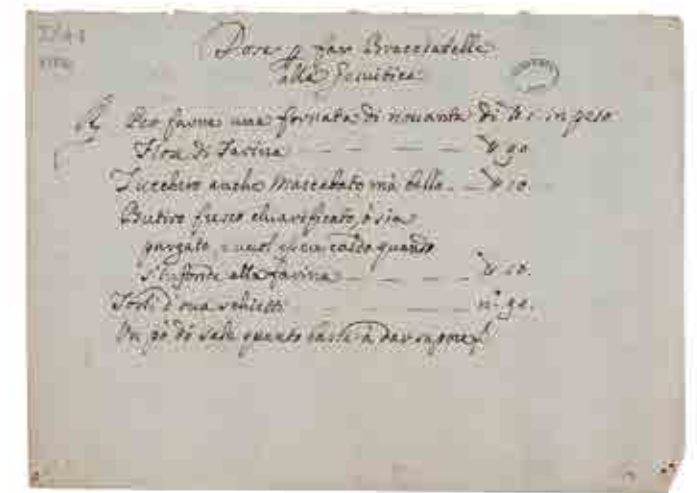 Dose p far Bracciatelle
alla Gesuitica
Per farne una fornata di novanta di lb 1 in peso
Fior di Farina lb 90
Zucchero anche Mascabato mà bello lb 10
Butiro fresco chiarificato, ò sia
purgato, e caldo quando
s'infonde alla farina lb 10.
Torli d'ova schietti n.º 90.
Un pò di sale quanto basti à dar sapore